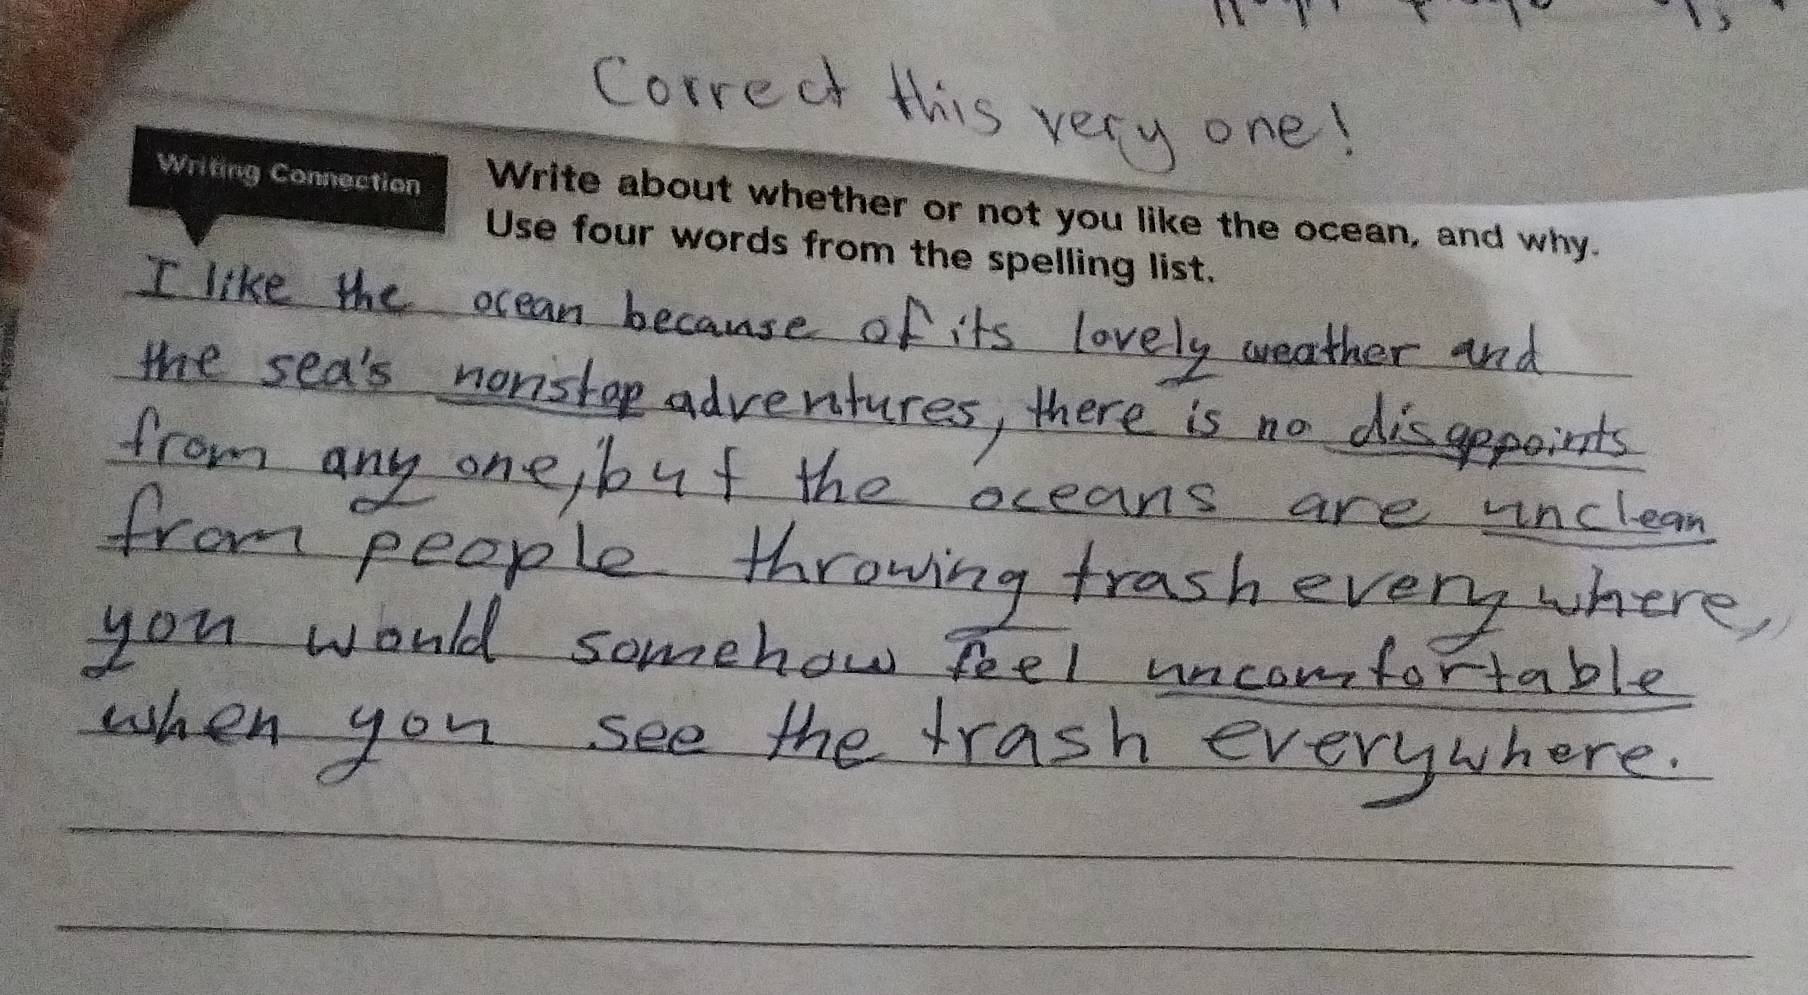 Correct this very one!
Writing Connection
Write about whether or not you like the ocean, and why.
Use four words from the spelling list.
I like the ocean because of its lovely weather and
the sea's nonstop adventures, there is no disappoints
from any one, but the oceans are unclean
from people throwing trash every where,
you would somehow feel uncomfortable
when you see the trash everywhere.